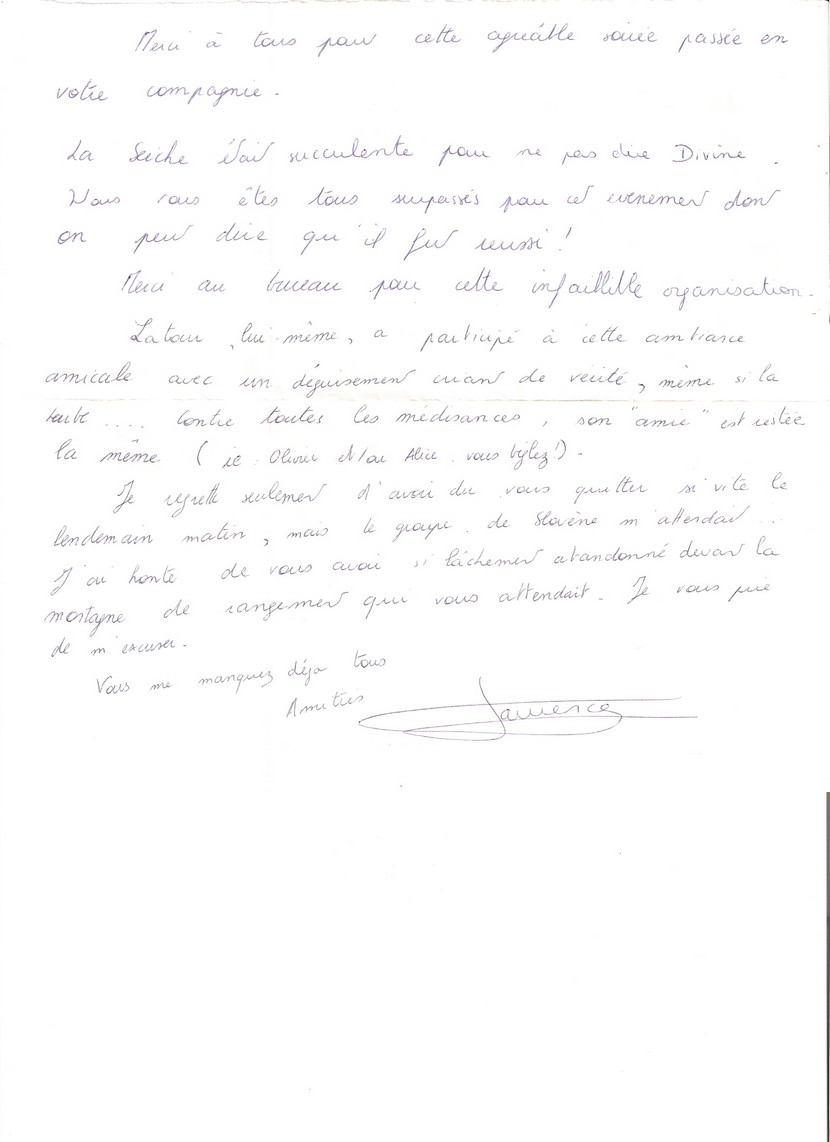 Merci à tous pour cette agréable soirée passée en
votre compagnie.
La Seiche était succulente pour ne pas dire Divine.
Vous vous êtes tous surpassés pour cet evenement dont
on peut dire qu'il fut reussi !
Merci au bureau pour cette infaillible organisation.
Latour, lui-même, a participé à cette ambiance
amicale avec un déguisement criant de verité, même si la
.... Contre toutes les médisances, son "amie" est restée
la même (ie : Olivier et/ou Alice vous !).
Je regrette seulement d'avoir du vous quitter si vite le
lendemain matin, mais le groupe de Slovène m'attendait...
J'ai honte de vous avoir si lâchement abandonné devant la
montagne de rangement qui vous attendait. Je vous prie
de m'excuser.
Vous me manquez déja tous
Amitiés